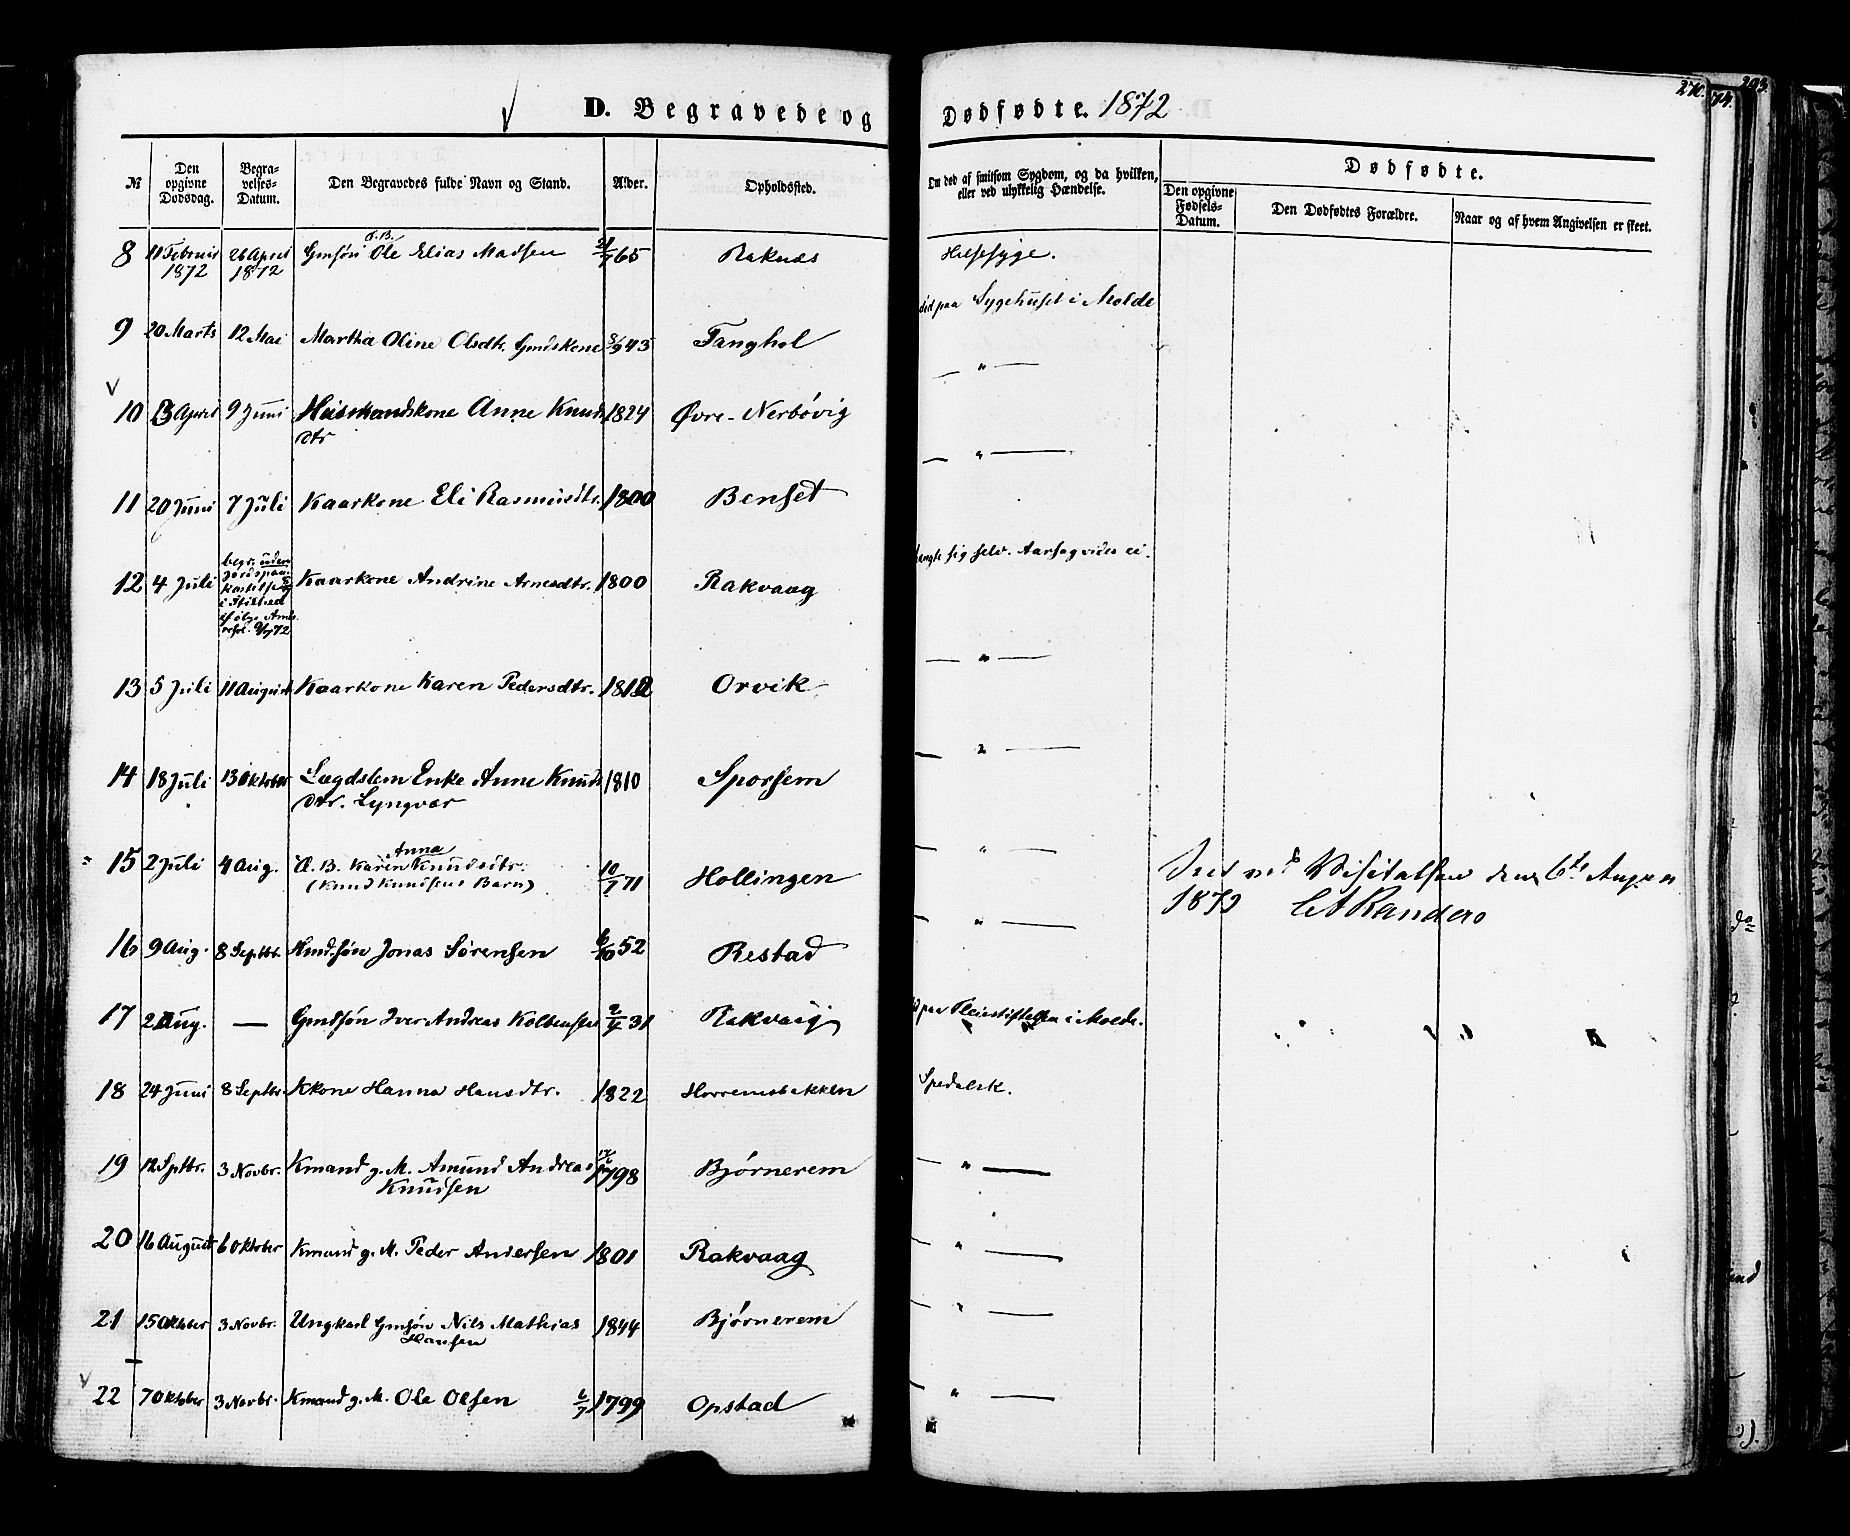 D. Begravede og Dødfødte. 1872
№
Den opgivne Dødsdag.
Begravelses-Datum.
Den Begravedes fulde Navn og Stand.
Alder.
Opholdssted.
Om død af smitsom Sygdom, og da hvilken, eller ved ulykkelig Hændelse.
Dødfødte.
Den opgivne Fødsels-Datum.
Den Dødfødtes Forældre.
Naar og af hvem Angivelsen er skeet.
8 11 Februar 1872 26 April 1872 Gmsøn Ole Elias Madsen 65 Raknes Halssyge.
død paa Sygehuset i Molde
9 20 Marts 12 Mai Martha Oline Olsdtr. Gmdskone 43 Tanghol
— " —
10 3 April 9 Juni Huusmandskone Anne Knudsdtr 1824 Øvre-Nerbøvig
— " —
11 20 Juni 7 Juli Kaarkone Eli Rasmusdtr. 1800 Benset
hengte sig selv. Aarsag vides ei.
12 4 Juli Kaarkone Andrine Arnesdtr. 1800 Rakvaag
— " —
13 5 Juli 11 August Kaarkone Karen Pedersdtr. 1812 Orvik
— " —
14 18 Juli 13 Oktober Lægdslem Enke Anne Knudsdtr. Lyngvær 1810 Sporsem
— " —
15 2 Juli 4 Aug. Æ.B. Karen Anna Knudsdtr. (Knud Knudsens Barn) 10/7 71 Hollingen
— " —
16 9 Aug. 8 Septbr. Hmdsøn Jonas Sørensen 52 Restad
17 2 Aug. — Gmdsøn Iver Andreas Kolbensen 31 Rakvaag paa Pleiestiftelsen i Molde.
18 24 Juni 8 Septbr. Kkone Hanna Hansdtr. 1822 Horremsbakken Spedalsk.
19 12 Sptbr. 3 Novbr. Kmand g.M. Amund Andreas Knudsen 1798 Bjørnerem — " —
20 16 August 6 Oktober Kmand g.M. Peder Andersen 1801 Rakvaag " —
21 15 Oktober 3 Novbr. Ungkarl Gmsøn Nils Mathias Hansen 1844 Bjørnerem — " —
22 7 Oktober 3 Novbr. Kmand g.M. Ole Olsen 6/7 1799 Opstad — " —
Visitatsen den 6te August
187
Randers